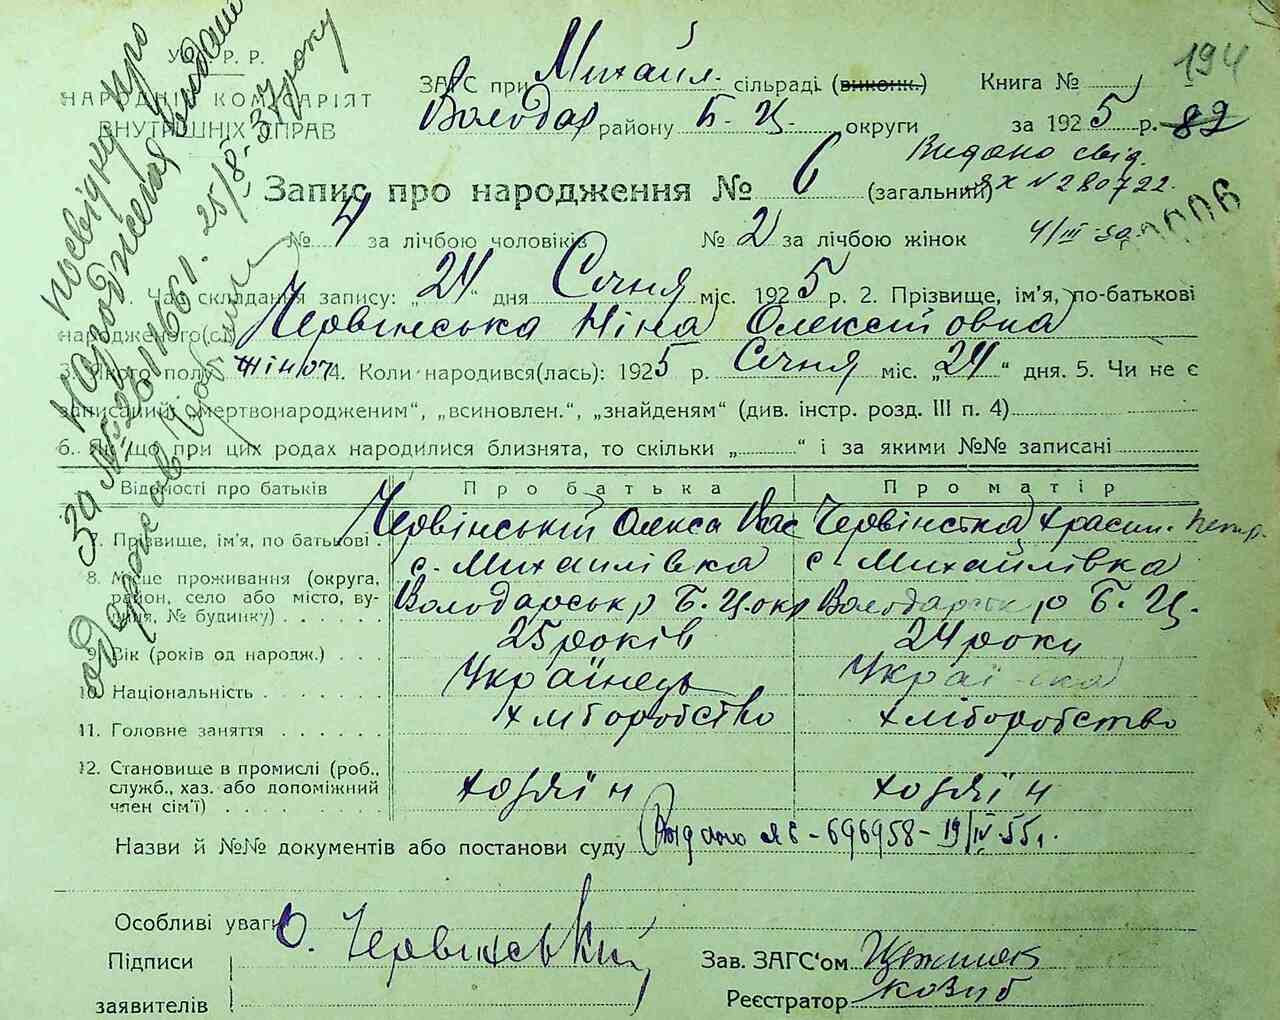 У. Р. Р.
НАРОДНІЙ КОМІСАРІЯТ
ВНУТРІШНІХ СПРАВ
194
ЗАГС при Михайл. сільраді (виконк.) Книга №
Володар району Б. Ц. округи за 1925 р. 82
Видано свід.
Запис про народження № 6 (загальний) ЯХ № 280722.
№ 4 за лічбою чоловіків № 2 за лічбою жінок 4/III-
1. Час складання запису: „24" дня Січня міс. 1925 р. 2. Прізвище, ім'я, по-батькові
народженого(ої) Червінська Ніна Олексіївна
3. Якого полу жіноч 4. Коли народився(лась): 1925 р. Січня міс. „24" дня. 5. Чи не є
записаний „мертвонародженим", „всиновлен.", „знайденям" (див. інстр. розд. III п. 4)
6. Якщо при цих родах народилися близнята, то скільки „ " і за якими №№ записані
Відомості про батьків Про батька Про матір
7. Прізвище, ім'я, по батькові. Червінський Олекса Вас Червінська Красин. Петр.
8. Місце проживання (округа, район, село або місто, вулиця, № будинку) с. Михайлівка с. Михайлівка
Володарськ р Б. Ц. окр Володарськ р Б. Ц.
9. Вік (років од народж.) 25 років 24 роки
10. Національність Українець Українка
11. Головне заняття хліборобство хліборобство
12. Становище в промислі (роб., служб., хаз. або допоміжний член сім'ї) хозяїн хозяїн
Назви й №№ документів або постанови суду Видано ЯЄ-696958-19/IV 55 г.
Особливі уваги
Підписи
заявителів
О. Червінський
Зав. ЗАГС'ом
Реєстратор
посвідка про
народження видане
за № 2611661. 25/8-37 року
одержав